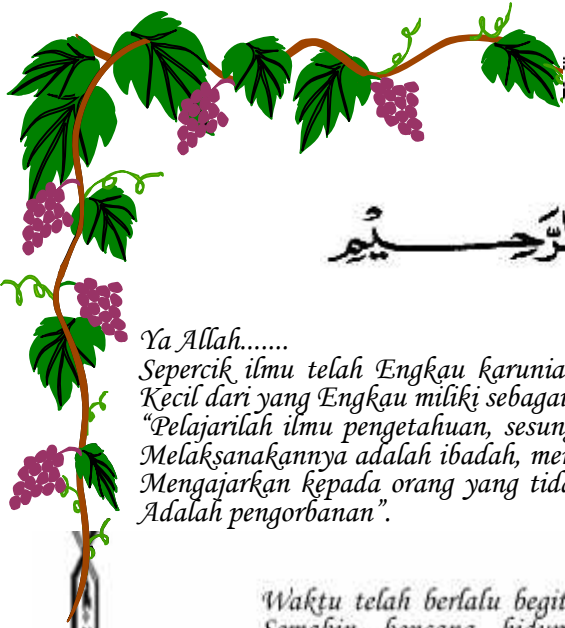 الرَّحِـــيْمِ
Ya Allah.......
Sepercik ilmu telah Engkau karunia
Kecil dari yang Engkau miliki sebagai
“Pelajarilah ilmu pengetahuan, sesung
Melaksanakannya adalah ibadah, men
Mengajarkan kepada orang yang tida
Adalah pengorbanan”.
Waktu telah berlalu begit